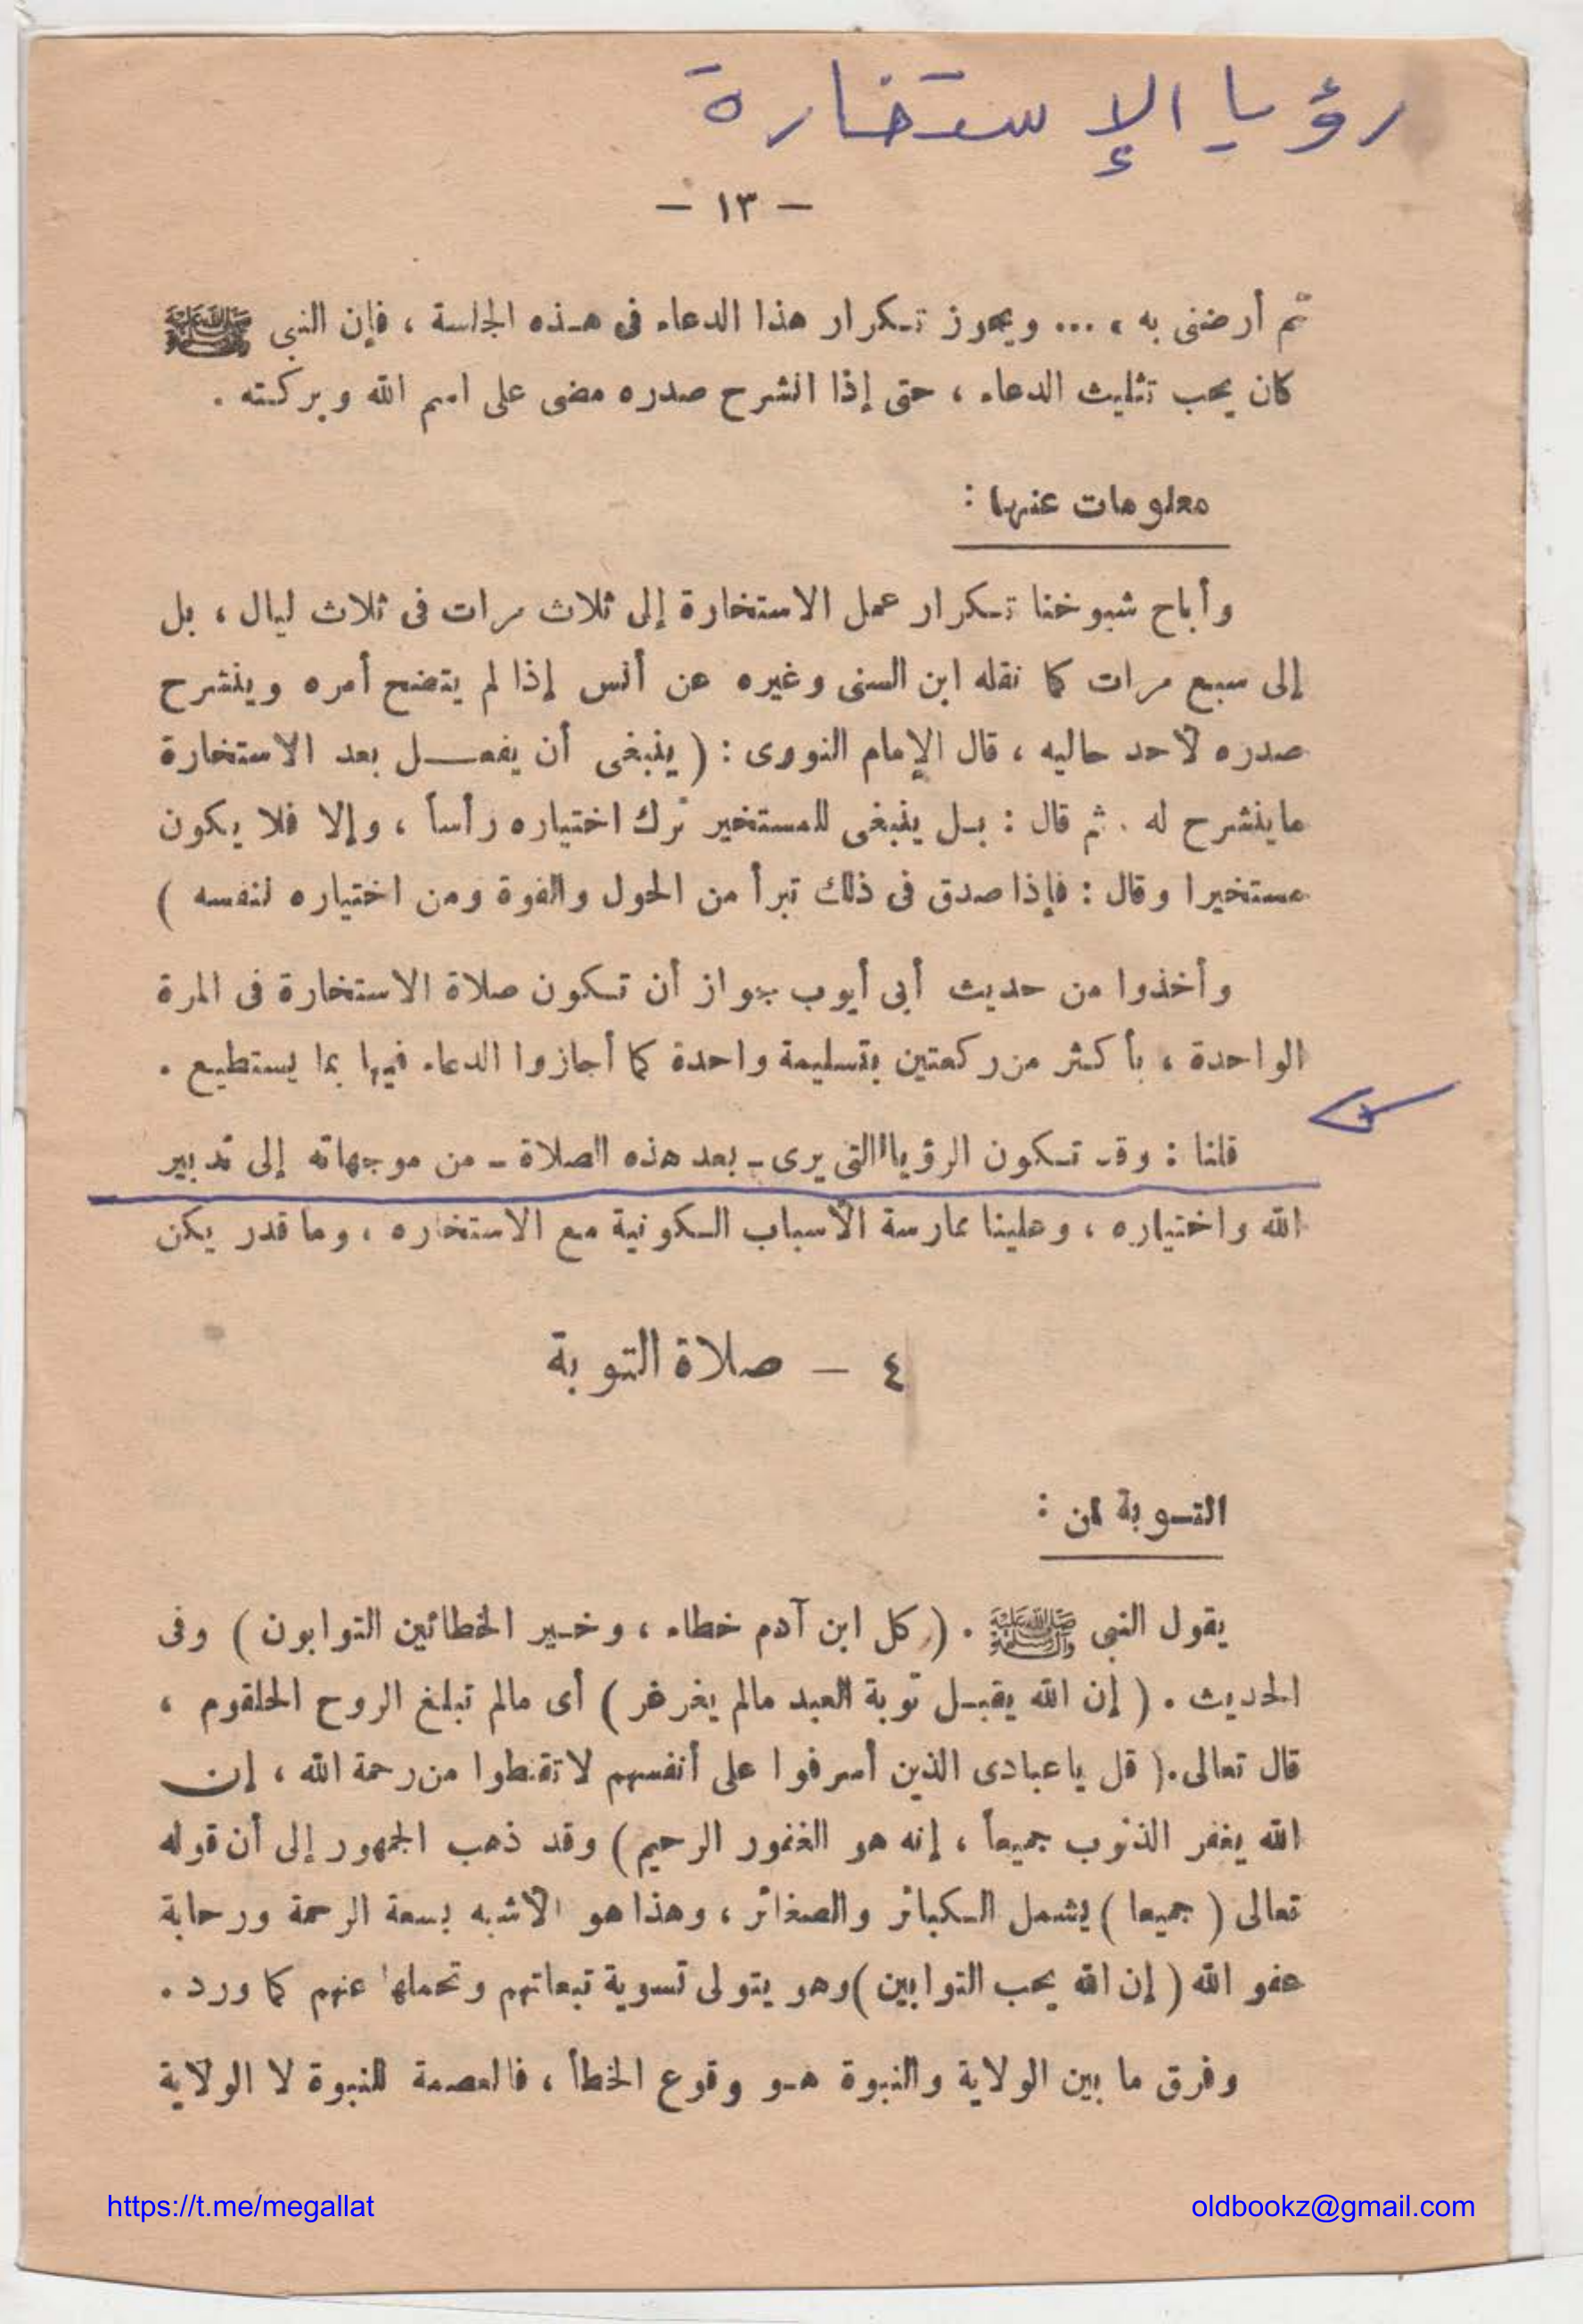 رؤيا الإستخارة
— ١٣ —
ثم أرضنى به ، ... ويجوز تكرار هذا الدعاء فى هذه الجلسة ، فإن النبى ﷺ
كان يحب تثليث الدعاء ، حتى إذا انشرح صدره مضى على اسم الله وبركته .
معلومات عنها :
وأباح شيوخنا تكرار عمل الاستخارة إلى ثلاث مرات فى ثلاث ليال ، بل
إلى سبع مرات كما نقله ابن السنى وغيره عن أنس إذا لم يتضح أمره وينشرح
صدره لأحد حاليه ، قال الإمام النووى : ( ينبغى أن يفعل بعد الاستخارة
ماينشرح له . ثم قال : بل ينبغى للمستخير ترك اختياره رأساً ، وإلا فلا يكون
مستخيرا وقال : فإذا صدق فى ذلك تبرأ من الحول والقوة ومن اختياره لنفسه )
وأخذوا من حديث أبى أيوب جواز أن تكون صلاة الاستخارة فى المرة
الواحدة ، بأكثر من ركعتين بتسليمة واحدة كما أجازوا الدعاء فيها بما يستطيع .
قلنا : وقد تكون الرؤيا التى يرى - بعد هذه الصلاة - من موجهاته إلى تدبير
الله واختياره ، وعلينا ممارسة الأسباب الكونية مع الاستخاره ، وما قدر يكن
٤ — صلاة التوبة
التوبة لمن :
يقول النبى ﷺ . ( كل ابن آدم خطاء ، وخير الخطائين التوابون ) وفى
الحديث . ( إن الله يقبل توبة العبد مالم يغرغر ) أى مالم تبلغ الروح الحلقوم ،
قال تعالى . ( قل ياعبادى الذين أسرفوا على أنفسهم لاتقنطوا من رحمة الله ، إن
الله يغفر الذنوب جميعاً ، إنه هو الغفور الرحيم ) وقد ذهب الجمهور إلى أن قوله
تعالى ( جميعا ) يشمل الكبائر والصغائر ، وهذا هو الأشبه بسعة الرحمة ورحابة
عفو الله ( إن الله يحب التوابين ) وهو يتولى تسوية تبعاتهم وتحملها عنهم كما ورد .
وفرق ما بين الولاية والنبوة هو وقوع الخطأ ، فالعصمة للنبوة لا الولاية
https://t.me/megallat
oldbookz@gmail.com